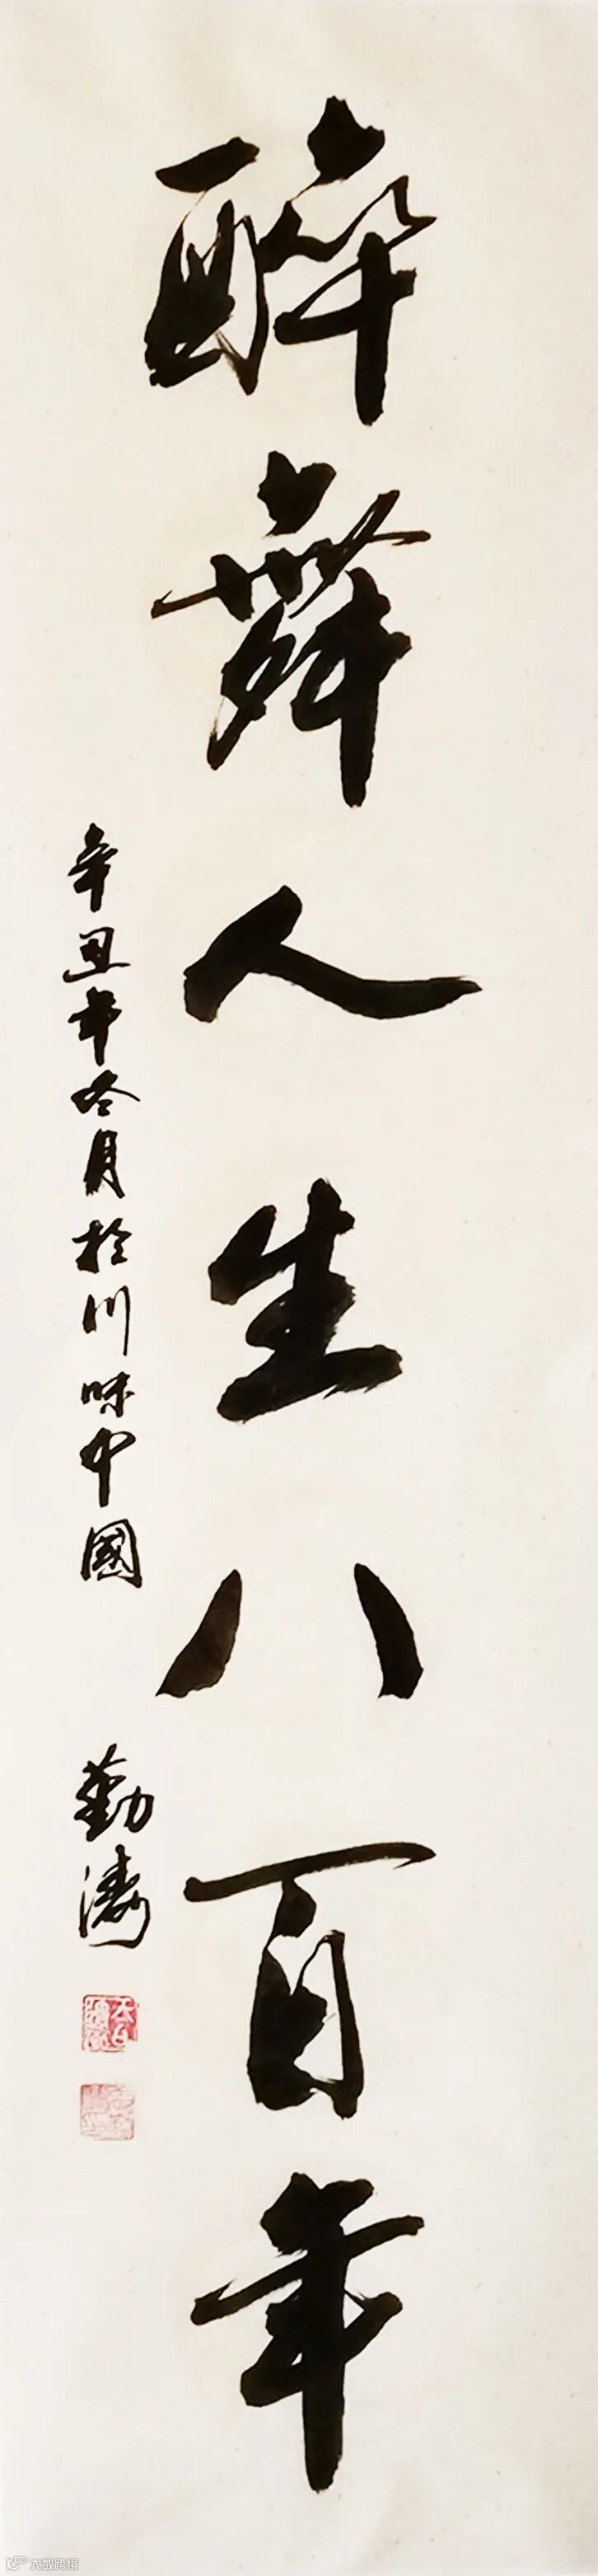 醉舞人生八百年
辛丑年冬月於川味中國
勤濤
大数跨境